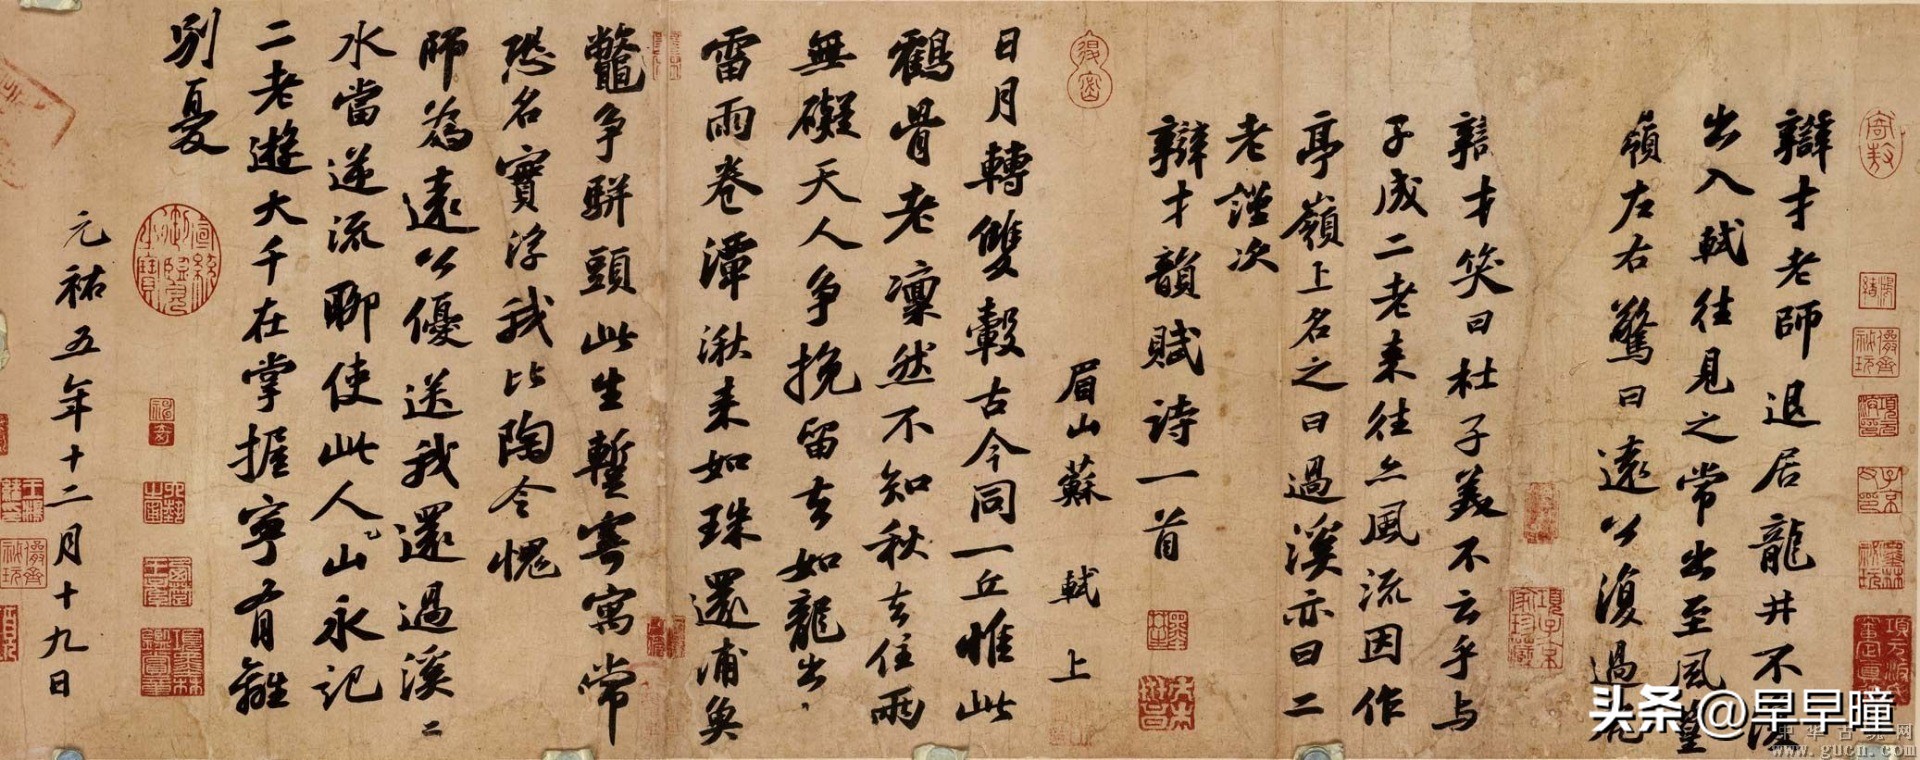 辯才老師退居龍井不復
出入軾往見之常出至風篁
嶺左右驚曰遠公復過虎
辯才笑曰杜子美不云乎与
子成二老来往亦風流因作
亭嶺上名之曰過溪亦曰二
老謹次
辯才韻賦詩一首
眉山蘇軾上
日月轉雙轂古今同一丘惟此
鶴骨老凜然不知秋去住兩
無礙天人争挽留去如龍出
雷雨卷潭湫来如珠還浦魚
鼈争駢頭此生暫寄寓常
恐名實浮我比陶令愧
師為遠公優送我還過溪二
水當逆流聊使此人山永記
二老遊大千在掌握寧有離
別憂
元祐五年十二月十九日
头条@早早瞳
中华古玩网
www.gucn.com